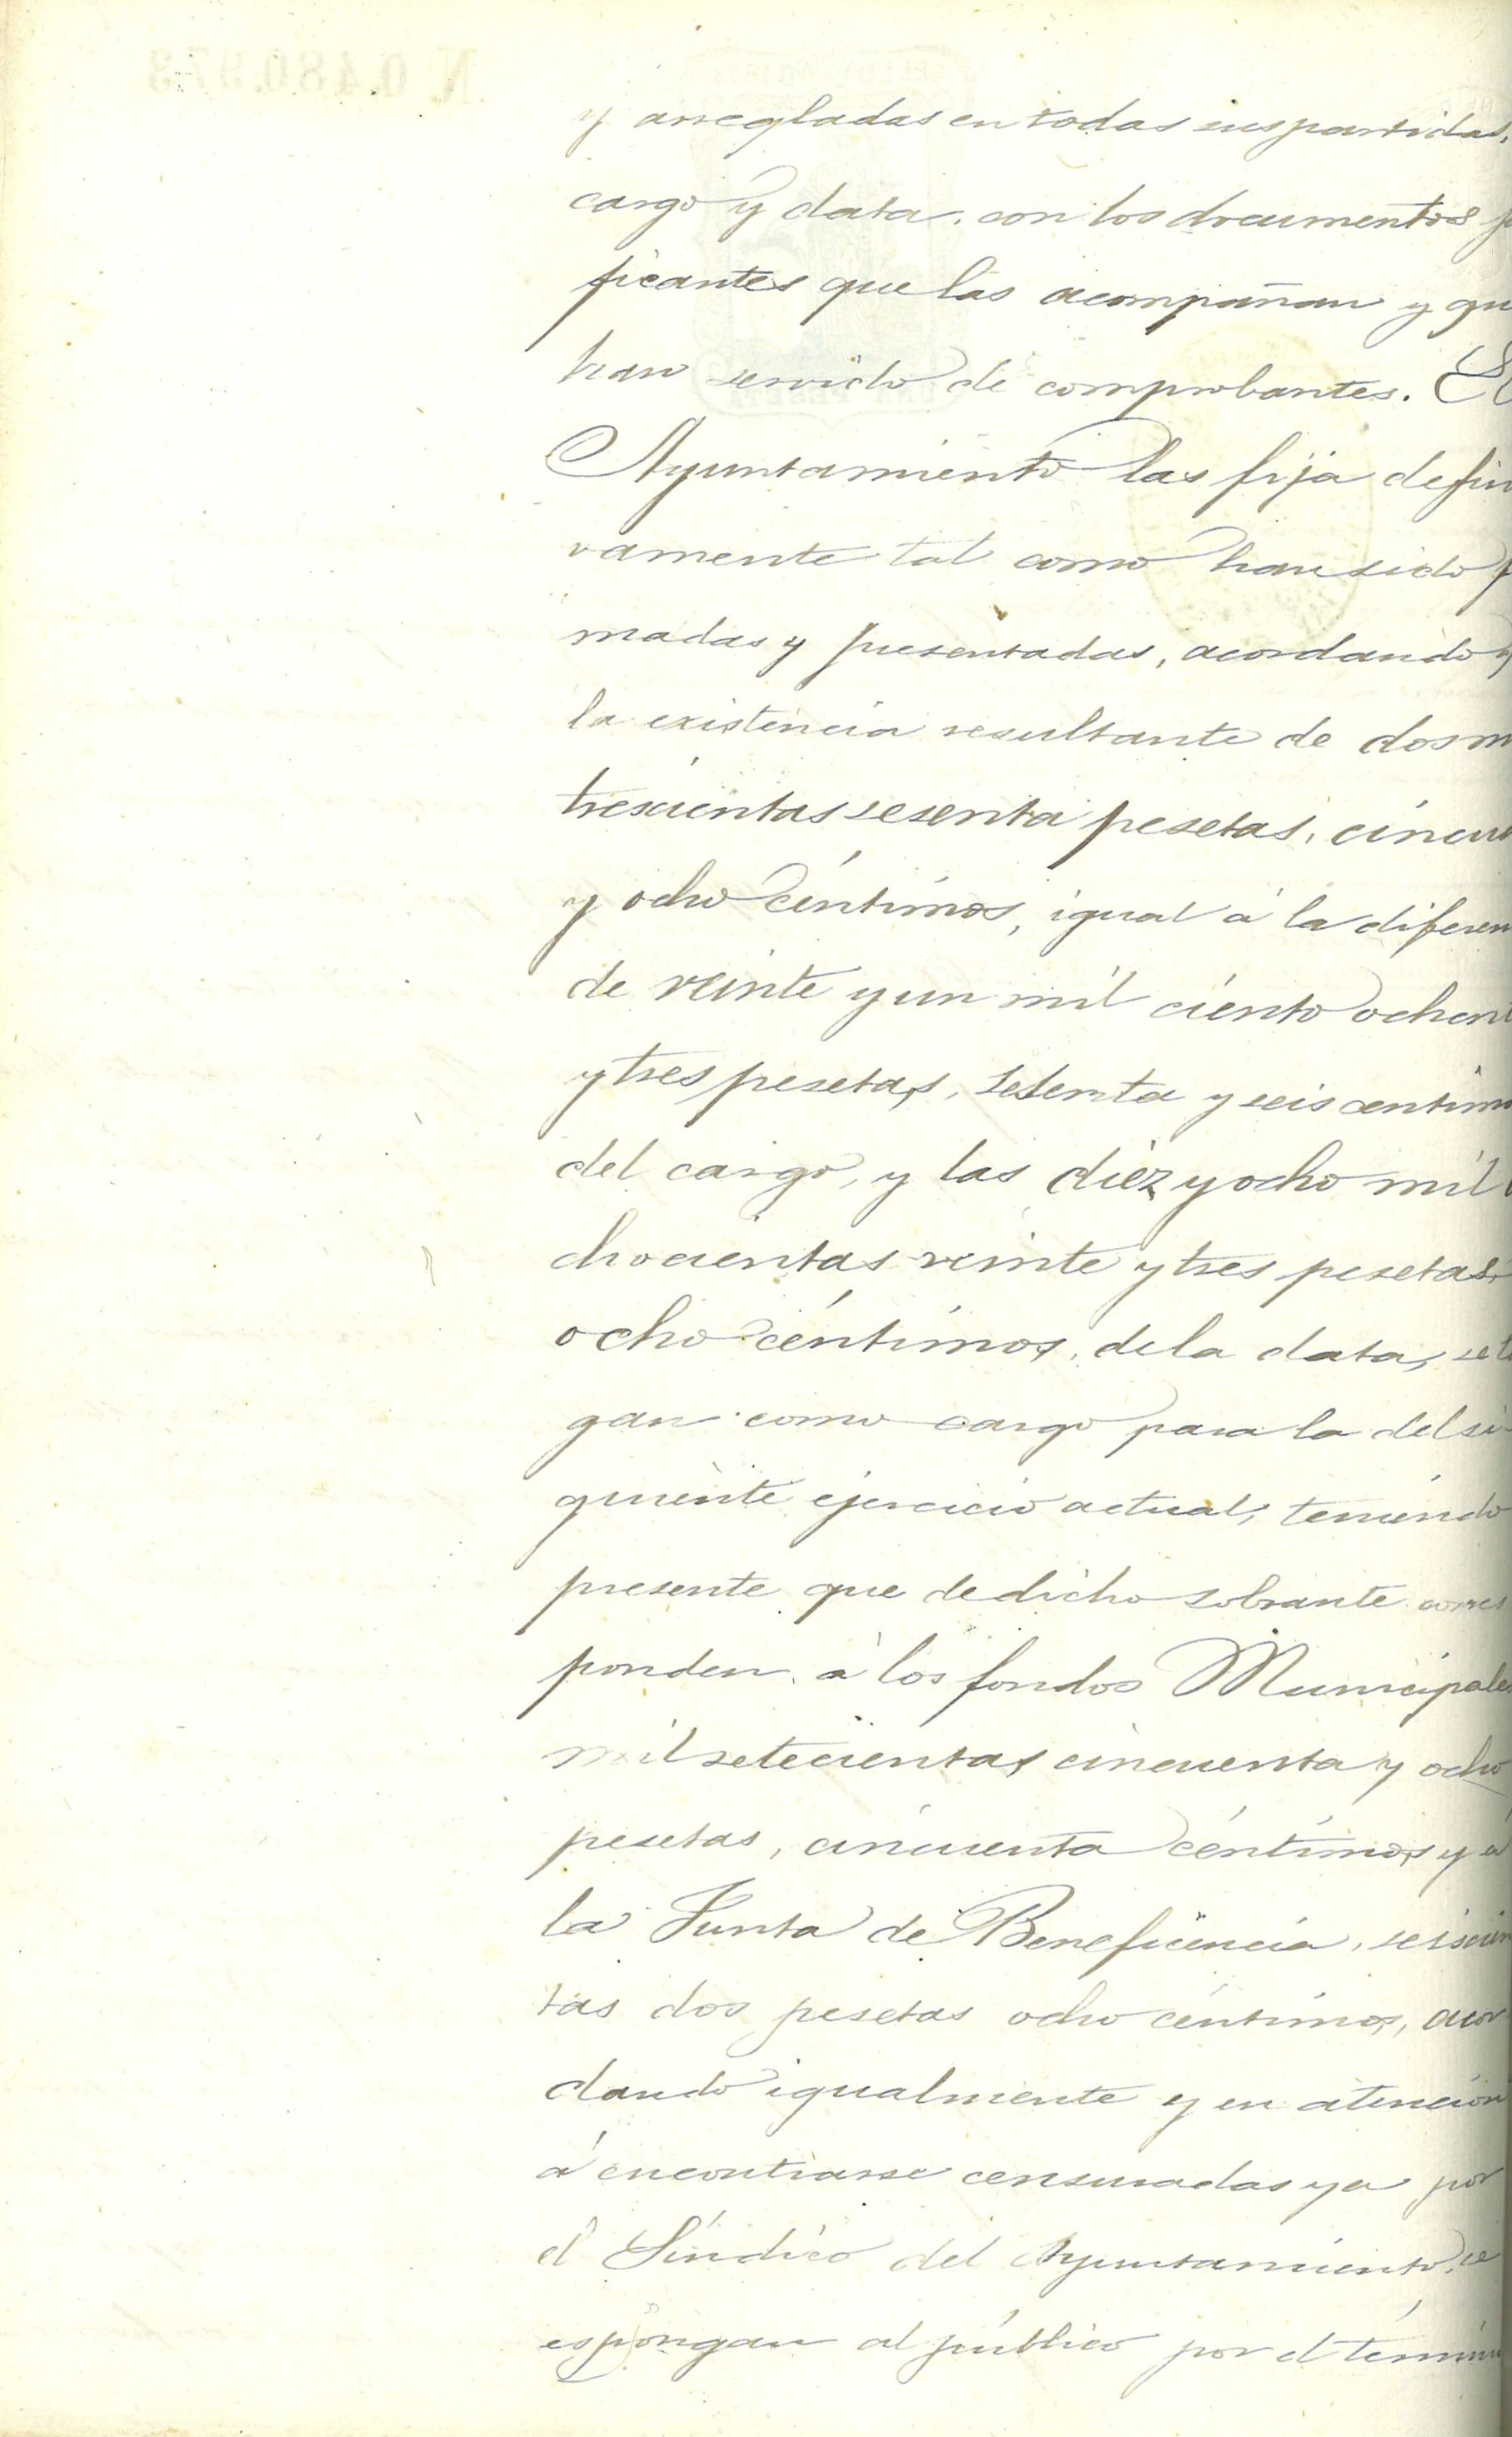 N. 0.480.973
y arregladas en todas sus partidas,
cargo y data, con los documentos
ficantes que las acompañan y qu
han servido de comprobantes. El
Ayuntamiento las fija defin
vamente tal como han sido f
madas y presentadas, acordando q
la existencia resultante de dos m
trescientas sesenta pesetas, cincue
y ocho céntimos, igual á la diferen
de veinte y un mil ciento ochent
y tres pesetas, sesenta y seis centimo
del cargo, y las diez y ocho mil o
chocientas veinte y tres pesetas,
ocho céntimos, de la data, se te
gan como cargo para la del si-
guiente ejercicio actual, teniendo
presente que de dicho sobrante corres
ponden á los fondos Municipales
mil setecientas cincuenta y ocho
pesetas, cincuenta céntimos y á
la Junta de Beneficencia, seiscien
tas dos pesetas ocho céntimos, acor
dando igualmente y en atención
á encontrarse censuradas ya por
el Síndico del Ayuntamiento, se
espongan al público por el término